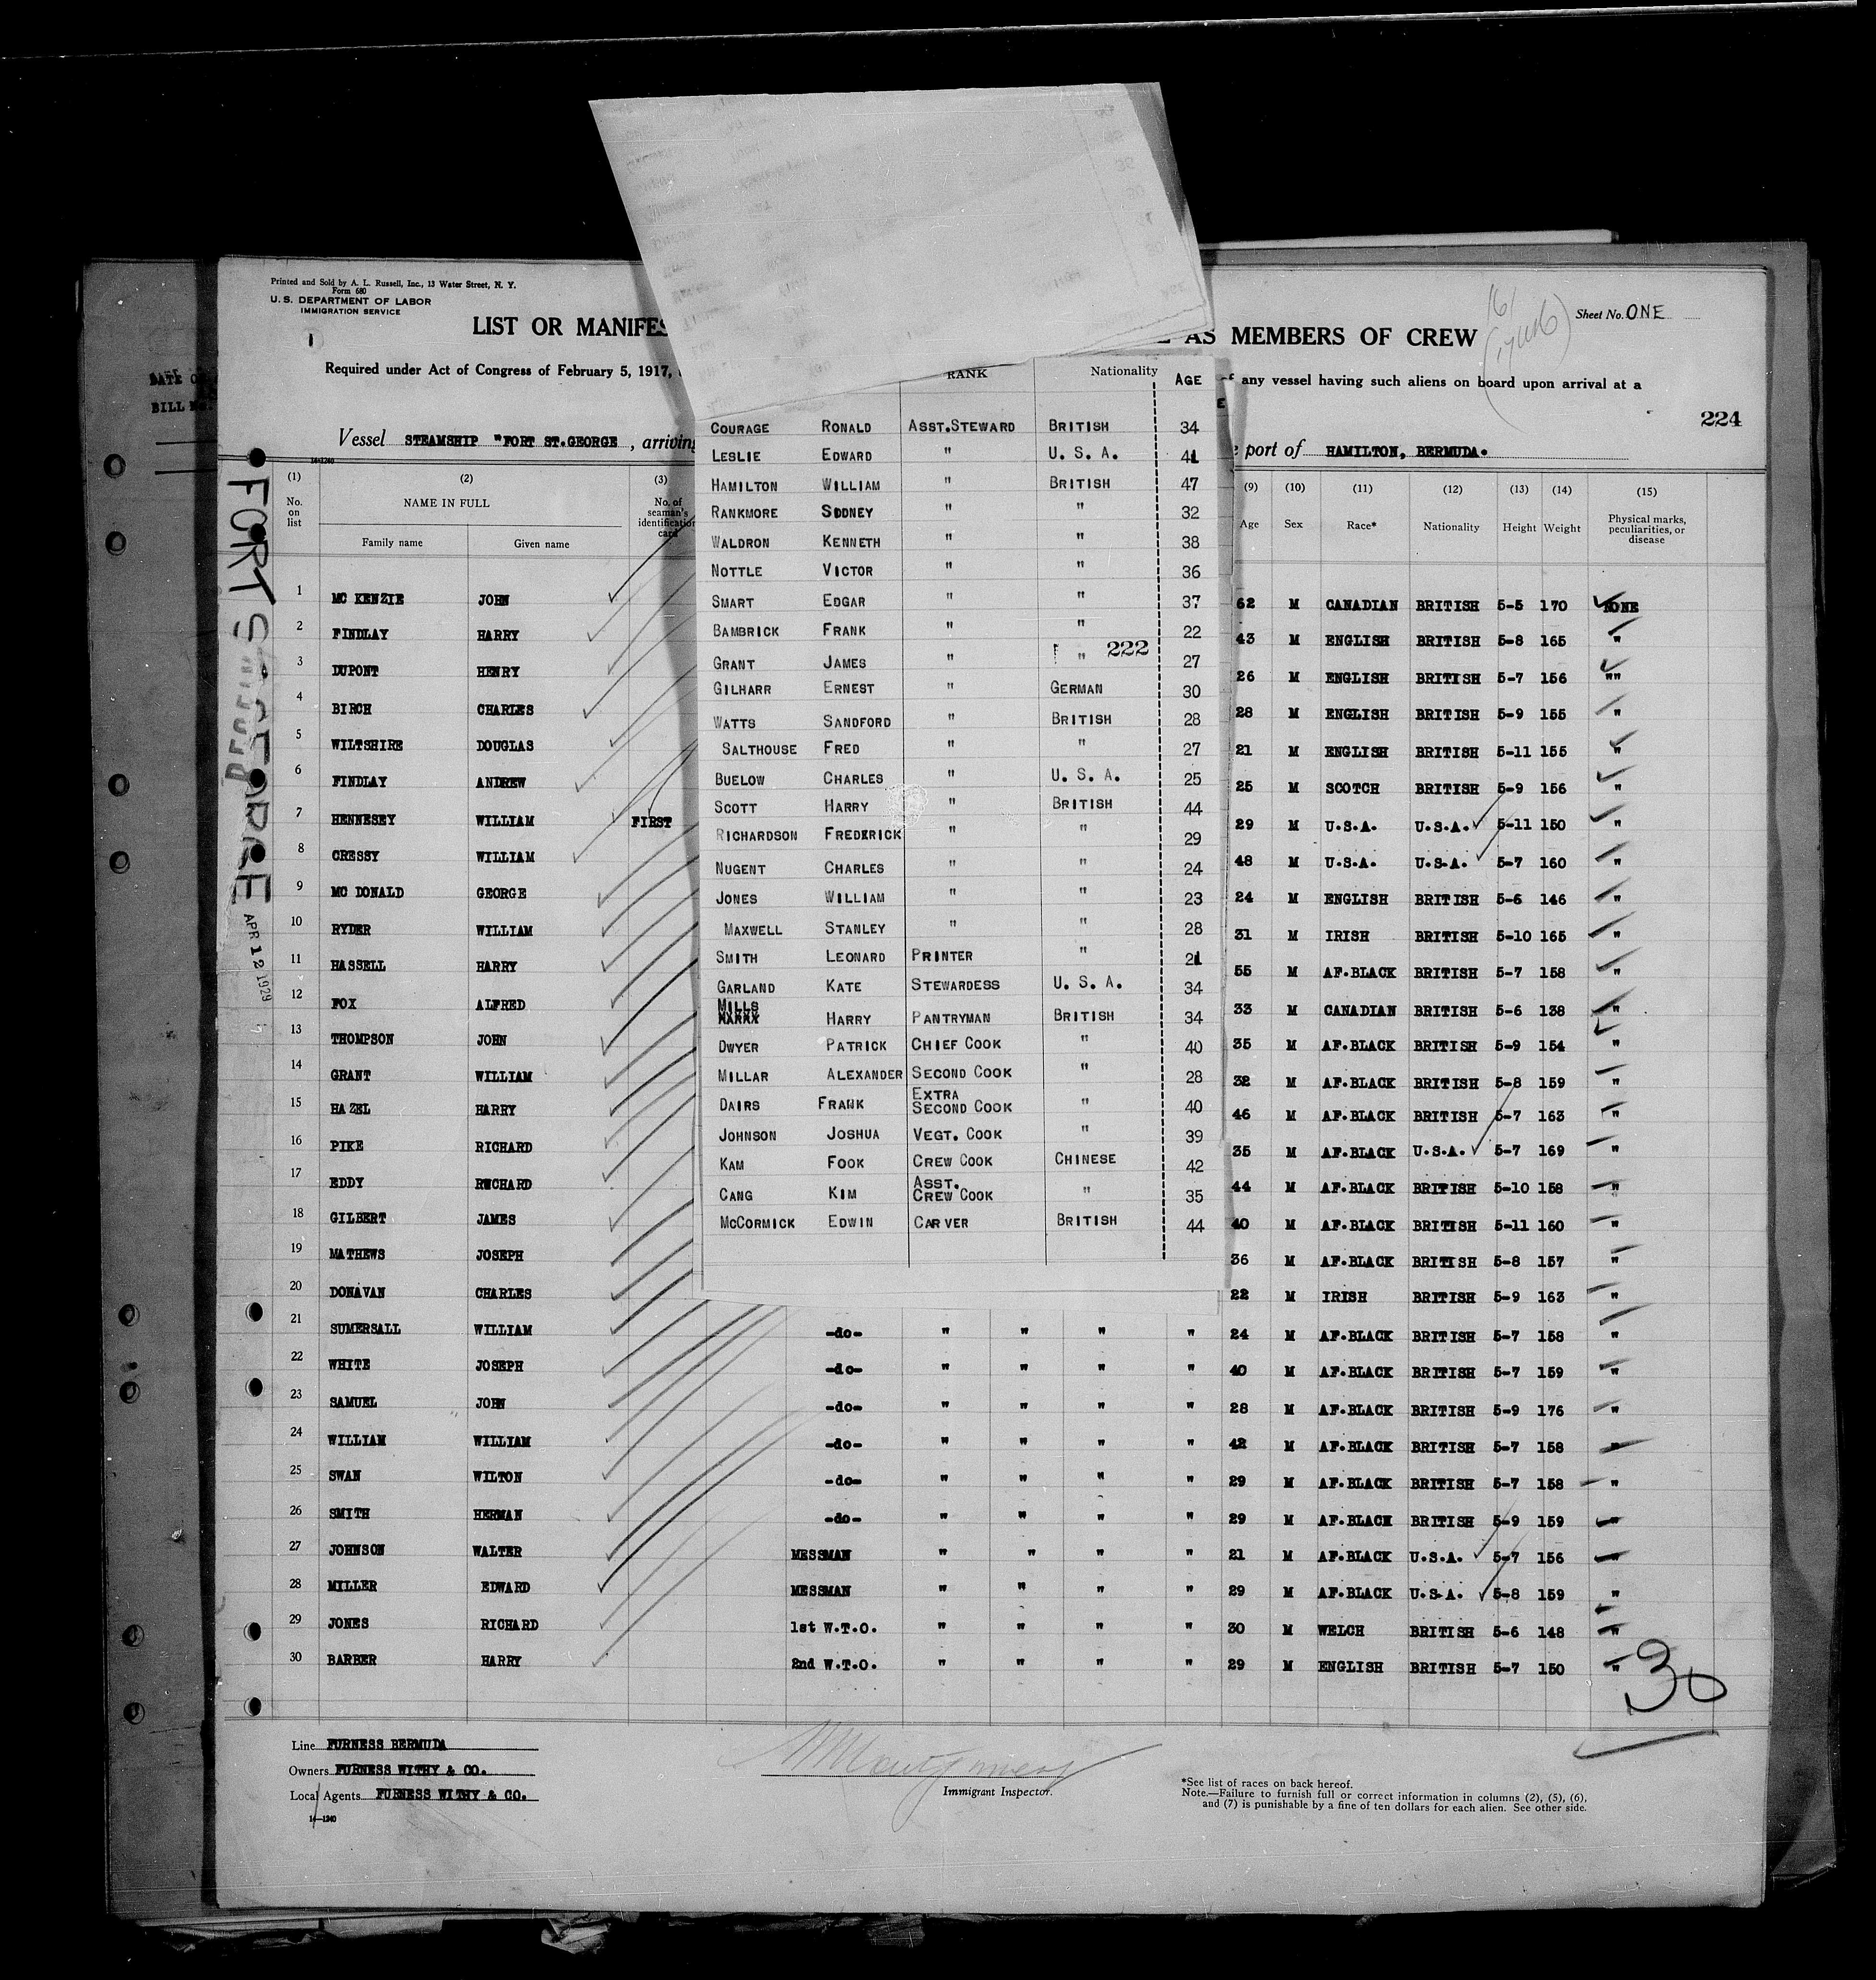 Printed and Sold by A. L. Russell, Inc., 13 Water Street, N. Y.
Form 680
U. S. DEPARTMENT OF LABOR
IMMIGRATION SERVICE
Sheet No. ONE
LIST OR MANIFES
AS MEMBERS OF CREW
Required under Act of Congress of February 5, 1917,
of any vessel having such aliens on board upon arrival at a
224
Vessel STEAMSHIP "FORT ST.GEORGE , arriving
port of HAMILTON, BERMUDA.
14-1240
FORT ST GEORGE
APR 12 1929
DATE OF
BILL No.
(1) (2) (3) (9) (10) (11) (12) (13) (14) (15)
No. on list NAME IN FULL No. of seaman's identification card Age Sex Race* Nationality Height Weight Physical marks, peculiarities, or disease
Family name Given name
1 MC KENZIE JOHN 62 M CANADIAN BRITISH 5-5 170 NONE
2 FINDLAY HARRY 43 M ENGLISH BRITISH 5-8 165 "
3 DUPONT HENRY 26 M ENGLISH BRITISH 5-7 156 ""
4 BIRCH CHARLES 28 M ENGLISH BRITISH 5-9 155 "
5 WILTSHIRE DOUGLAS 21 M ENGLISH BRITISH 5-11 155 "
6 FINDLAY ANDREW 25 M SCOTCH BRITISH 5-9 156 "
7 HENNESEY WILLIAM FIRST 29 M U.S.A. U.S.A. 5-11 150 "
8 CRESSY WILLIAM 48 M U.S.A. U.S.A. 5-7 160 "
9 MC DONALD GEORGE 24 M ENGLISH BRITISH 5-6 146 "
10 RYDER WILLIAM 31 M IRISH BRITISH 5-10 165 "
11 HASSELL HARRY 55 M AF.BLACK BRITISH 5-7 158 "
12 FOX ALFRED 33 M CANADIAN BRITISH 5-6 138 "
13 THOMPSON JOHN 35 M AF.BLACK BRITISH 5-9 154 "
14 GRANT WILLIAM 32 M AF.BLACK BRITISH 5-8 159 "
15 HAZEL HARRY 46 M AF.BLACK BRITISH 5-7 163 "
16 PIKE RICHARD 35 M AF.BLACK U.S.A. 5-7 169 "
17 EDDY RWCHARD 44 M AF.BLACK BRITISH 5-10 158 "
18 GILBERT JAMES 40 M AF.BLACK BRITISH 5-11 160 "
19 MATHEWS JOSEPH 36 M AF.BLACK BRITISH 5-8 157 "
20 DONAVAN CHARLES 22 M IRISH BRITISH 5-9 163 "
21 SUMERSALL WILLIAM -do- " " " " 24 M AF.BLACK BRITISH 5-7 158 "
22 WHITE JOSEPH -do- " " " " 40 M AF.BLACK BRITISH 5-7 159 "
23 SAMUEL JOHN -do- " " " " 28 M AF.BLACK BRITISH 5-9 176 "
24 WILLIAM WILLIAM -do- " " " " 42 M AF.BLACK BRITISH 5-7 158 "
25 SWAN WILTON -do- " " " " 29 M AF.BLACK BRITISH 5-7 158 "
26 SMITH HERMAN -do- " " " " 29 M AF.BLACK BRITISH 5-9 159 "
27 JOHNSON WALTER MESSMAN " " " " 21 M AF.BLACK U.S.A. 5-7 156 "
28 MILLER EDWARD MESSMAN " " " " 29 M AF.BLACK U.S.A. 5-8 159 "
29 JONES RICHARD 1st W.T.O. " " " " 30 M WELCH BRITISH 5-6 148 "
30 BARBER HARRY 2nd W.T.O. " " " " 29 M ENGLISH BRITISH 5-7 150 "
30
RANK Nationality AGE
COURAGE RONALD ASST.STEWARD BRITISH 34
LESLIE EDWARD " U. S. A. 41
HAMILTON WILLIAM " BRITISH 47
RANKMORE SDDNEY " " 32
WALDRON KENNETH " " 38
NOTTLE VICTOR " " 36
SMART EDGAR " " 37
BAMBRICK FRANK " " 22
222
GRANT JAMES " " 27
GILHARR ERNEST " GERMAN 30
WATTS SANDFORD " BRITISH 28
SALTHOUSE FRED " " 27
BUELOW CHARLES " U. S. A. 25
SCOTT HARRY " BRITISH 44
RICHARDSON FREDERICK " " 29
NUGENT CHARLES " " 24
JONES WILLIAM " " 23
MAXWELL STANLEY " " 28
SMITH LEONARD PRINTER " 21
GARLAND KATE STEWARDESS U. S. A. 34
MILLS HARRY PANTRYMAN BRITISH 34
DWYER PATRICK CHIEF COOK " 40
MILLAR ALEXANDER SECOND COOK " 28
DAIRS FRANK EXTRA SECOND COOK " 40
JOHNSON JOSHUA VEGT. COOK " 39
KAM FOOK CREW COOK CHINESE 42
CANG KIM ASST. CREW COOK " 35
MCCORMICK EDWIN CARVER BRITISH 44
Line FURNESS BERMUDA
Owners FURNESS WITHY & CO.
Local Agents FURNESS WITHY & CO.
14-1240
Immigrant Inspector.
*See list of races on back hereof.
Note.—Failure to furnish full or correct information in columns (2), (5), (6),
and (7) is punishable by a fine of ten dollars for each alien. See other side.